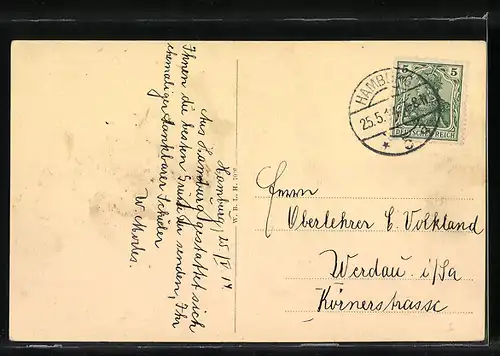 Hamburg, 25/V 14.
Aus Hamburg gestattet sich
Ihnen die besten Grüße zu senden, Ihr
ehemaliger dankbarer Schüler
W. Mordes.
W. B. L. H.
HAMBURG
25.5.14
5
DEUTSCHES REICH
Herrn
Oberlehrer E. Volkland
Werdau i/Sa
Körnerstrasse